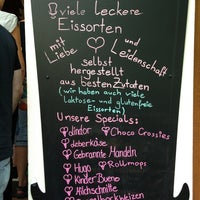 viele leckere
Eissorten
mit Liebe und Leidenschaft
selbst
hergestellt
aus besten Zutaten
(wir haben auch viele
laktose- und glutenfreie
Eissorten)
Unsere Specials:
Lindor
Choco Crossies
Leberkäse
Gebrannte Mandeln
Hugo
Rollmops
Kinder Bueno
Milchschnitte